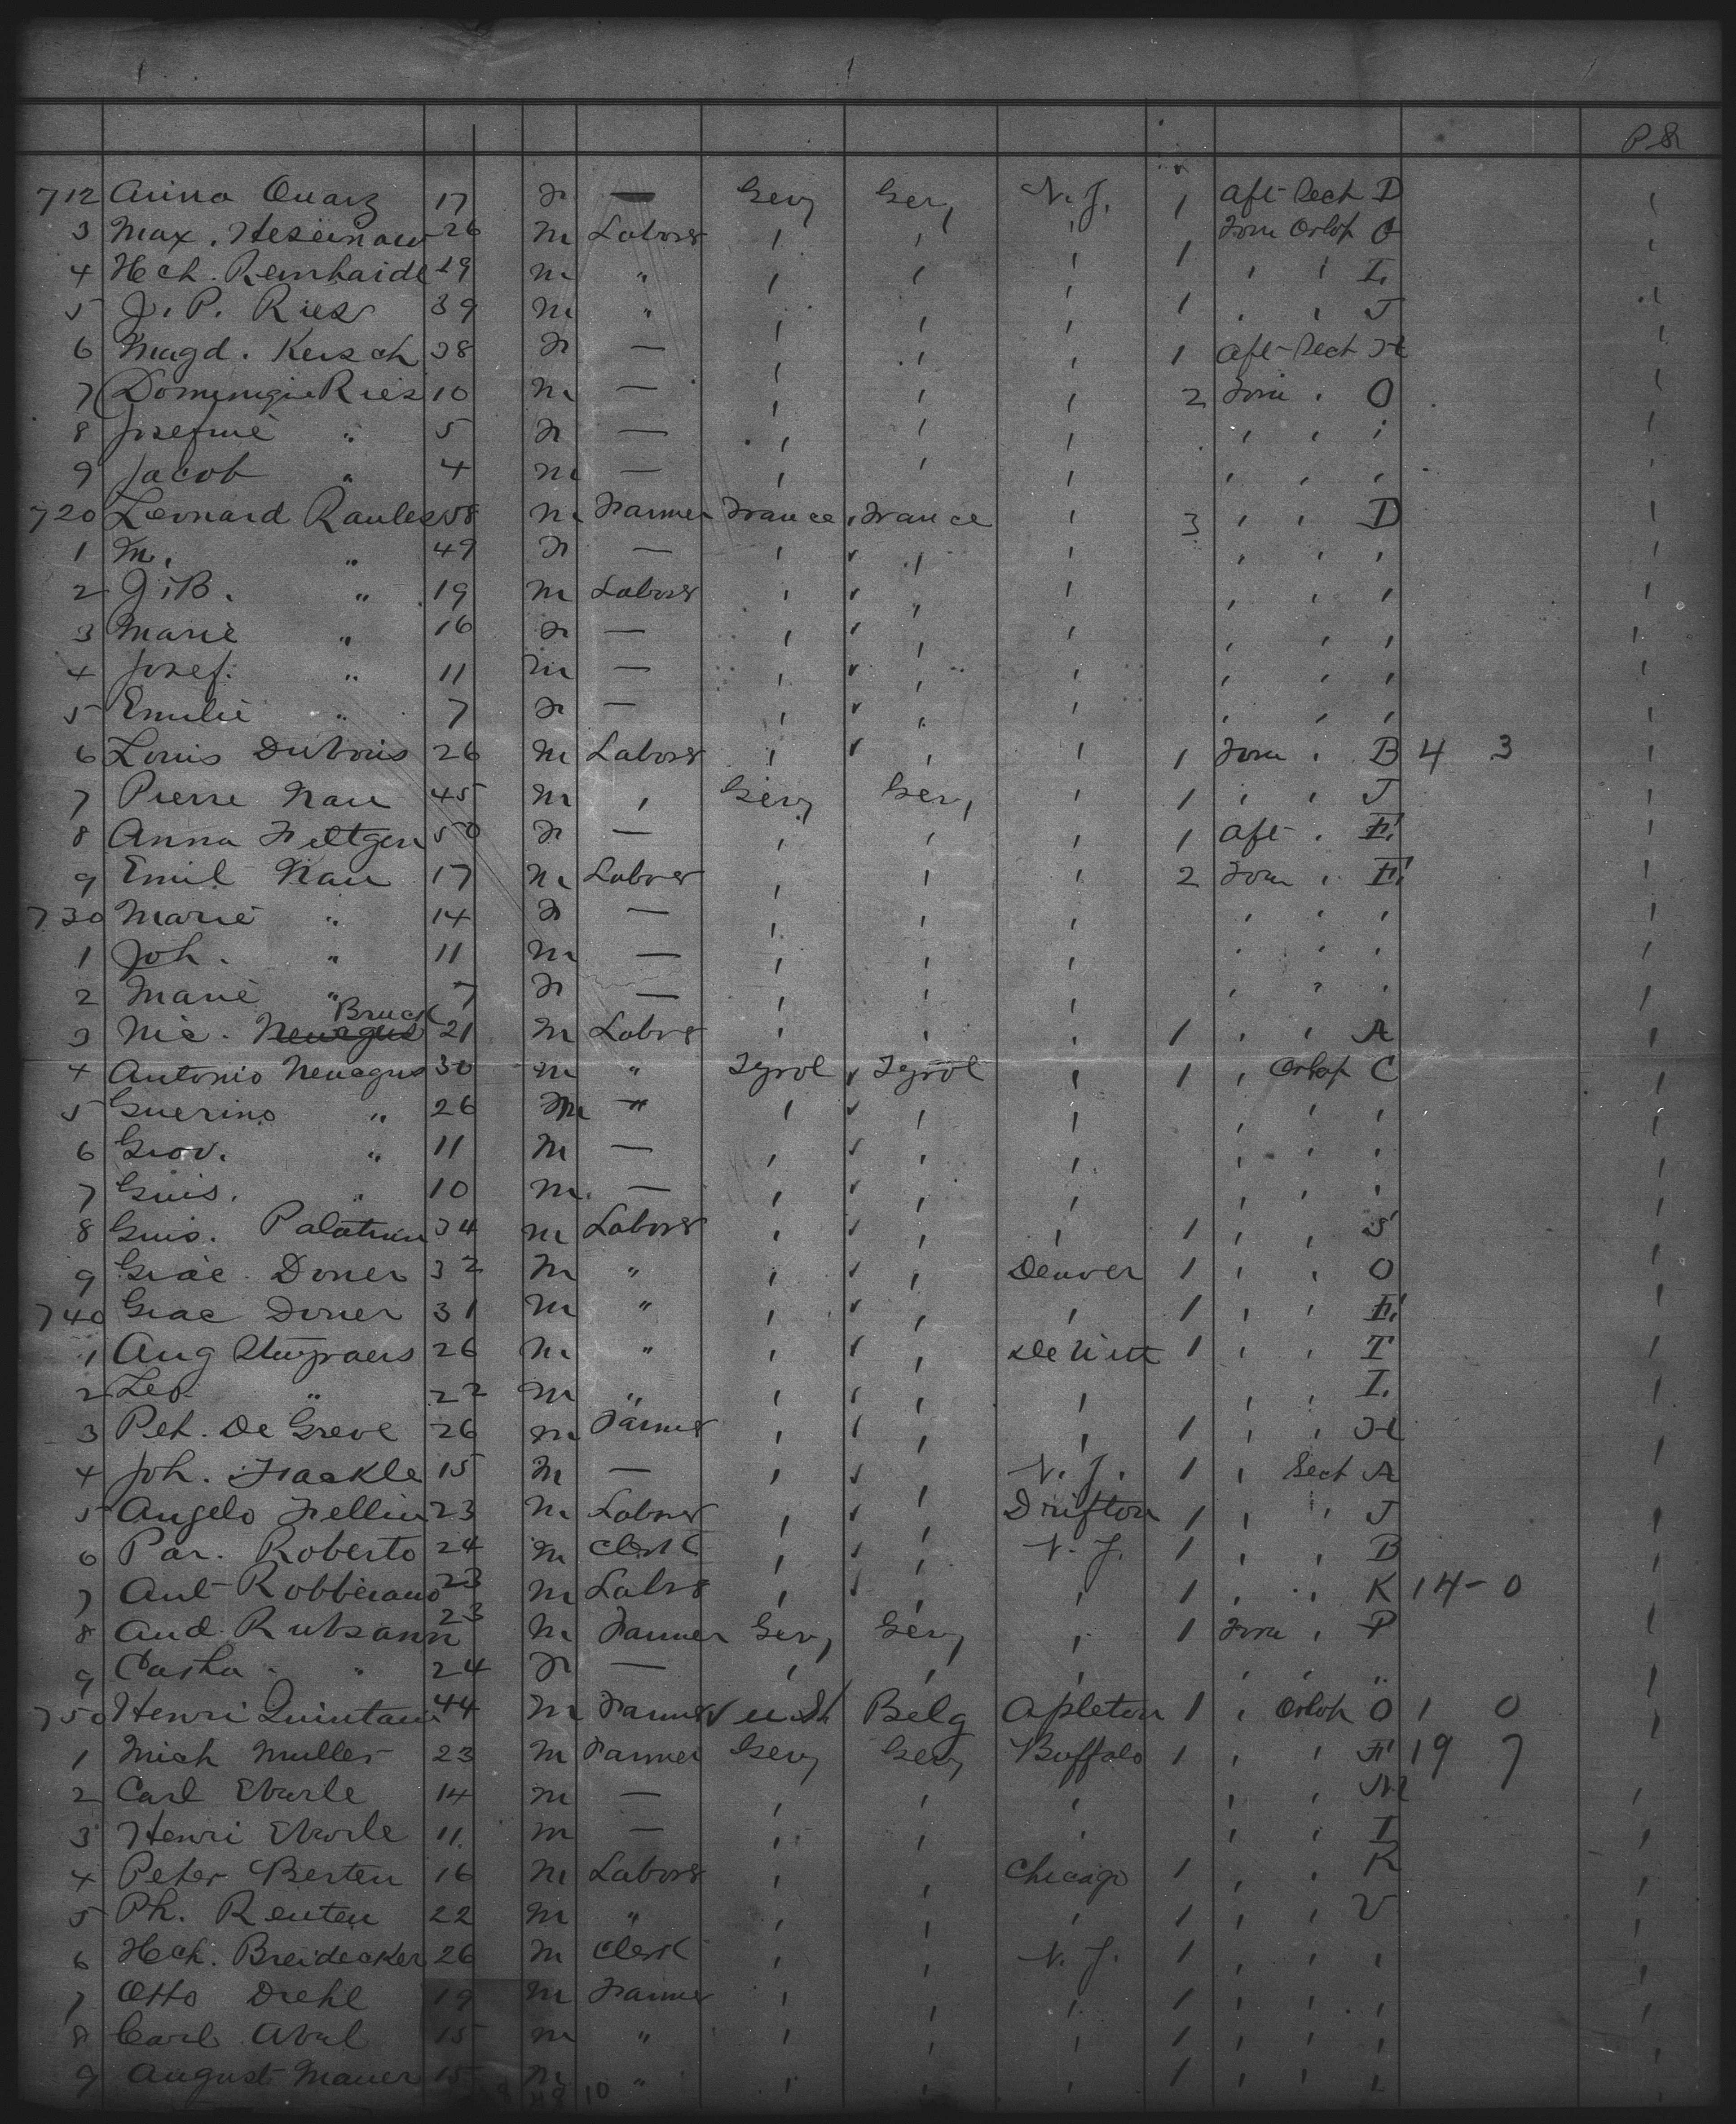 P. S.
712 Anna Quarz 17 F — Gery Gery N. Y. 1 Aft Sect D
3 Max. 26 M Laborer " " " 1 Forw Orlop
4 Hch. Reinhaide 29 M " " " " 1 " " I
5 J. P. Ries 39 M " " " " 1 " " J
6 Magd. Kersch 38 F — " " " 1 Aft Sect H
7 Dominique Ries 10 M — " " " 2 Forw " O
8 Josefine " 5 F — " " " " " "
9 Jacob " 4 M — " " " " " "
720 Leonard Raules 58 M Farmer France France " 3 " " D
1 M. " 49 F — " " " " " "
2 J. B. " 19 M Laborer " " " " " "
3 Marie " 16 F — " " " " " "
4 Josef. " 11 M — " " " " " "
5 Emilie " 7 F — " " " " " "
6 Louis Dubois 26 M Laborer " " " 1 Forw " B 4 3
7 Pierre Nau 45 M " Gery Gery " 1 " " J
8 Anna Feltgen 50 F — " " " 1 Aft " F
9 Emil Nau 17 M Laborer " " " 2 Forw " F
730 Marie " 14 F — " " " " " "
1 Joh. " 11 M — " " " " " "
2 Marie " 7 F — " " " " " "
3 Nic. Bruck 21 M Labor " " " 1 " " A
4 Antonio Nenagus 30 M " Tyrol Tyrol " 1 " Orlop C
5 Guerino " 26 M " " " " " " "
6 Giov. " 11 M — " " " " " "
7 Guis. " 10 M — " " " " " "
8 Guis. 34 M Laborer " " " 1 " " S
9 Giac. Doner 32 M " " " Denver 1 " " O
740 Giac Doner 31 M " " " " 1 " " F
1 Aug 26 M " " " 1 " " T
2 Leo " 22 M " " " " " " I
3 Pet. De Greve 26 M Farmer " " " 1 " " H
4 Joh. 15 M — " " N. Y. 1 " Sect A
5 Angelo Fellin 23 M Laborer " " Drifton 1 " " J
6 Par. Roberto 24 M Clerk " " N. Y. 1 " " B
7 Ant 23 M Labor " " " 1 " " K 14 - 0
8 And. Rubsann 23 M Farmer Gery Gery " 1 Forw " P
9 " 24 F — " " " " " "
750 Henri Quintain 44 M Farmer Belg Apleton 1 " Orlop O 1 0
1 Mich Muller 23 M Farmer Gery Gery Buffalo 1 " " F 19 7
2 Carl Eberle 14 M — " " " " " M
3 Henri Eberle 11 M — " " " " " I
4 Peter Berten 16 M Laborer " " Chicago 1 " " R
5 Ph. Renten 22 M " " " " 1 " " V
6 Hch. Breidecker 26 M Clerk " " N. Y. 1 " " "
7 Otto Diehl 19 M Farmer " " " 1 " " "
8 Carl Abel 15 M " " " " 1 " " "
9 August Mauer 15 M " " " " 1 " " "